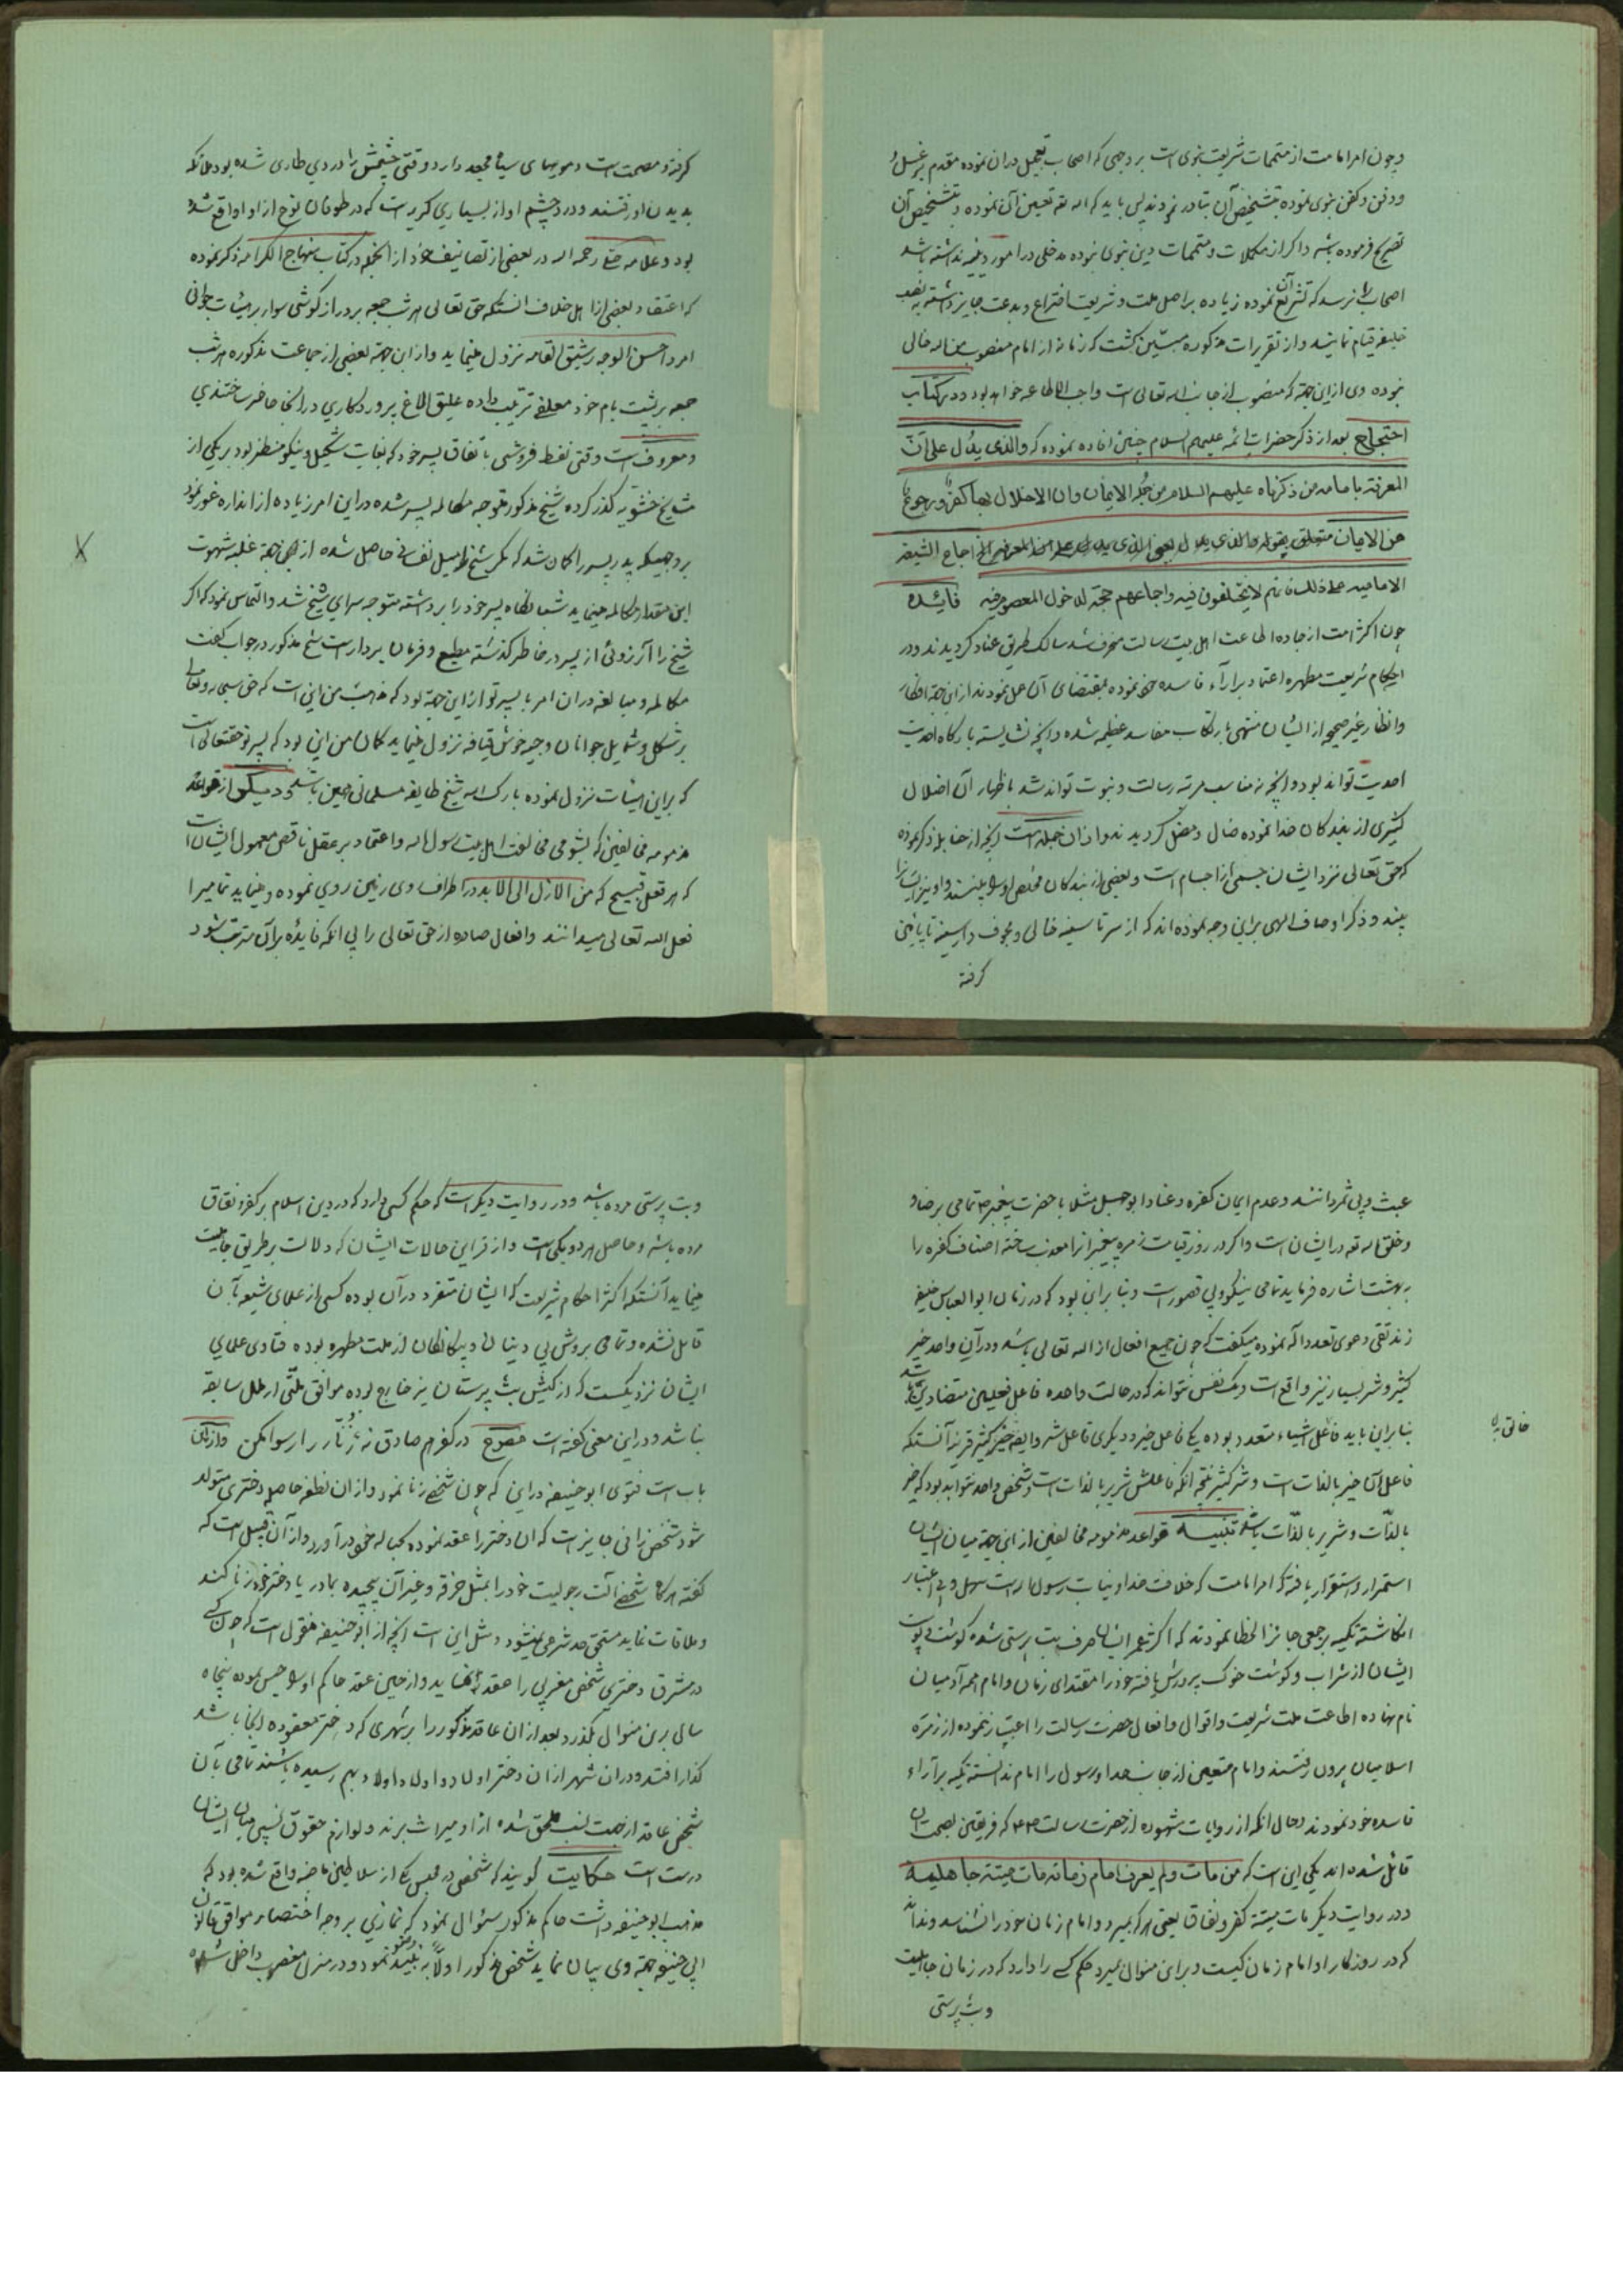 و چون امر امامت از متممات شریعت نبوی است بر وجهی که اصحاب تعجیل در ان نموده مقدم بر غسل و
ودفن و کفن نبوی نموده بتشخیص آن تبادر نمودند پس باید که الله تعه تعیین آن نموده و بتشخیص آن
تصریح فرموده باشد و اگر از مکملات و متممات دین نبوی نبوده مدخلی در امور دینیه نداشته باشد
اصحاب را نرسد که تشریع آن نموده زیاده بر اصل ملت و شریعت اختراع و بدعت جایز داشته به نصب
خلیفه قیام نمایند و از تقریرات مذکوره مبین گشت که زمانه از امام منصوب من الله خالی
نبوده وی از این جهة که منصوب از جانب الله تعالی است واجب الاطاعه خواهد بود و در کتاب
احتجاج بعد از ذکر حضرات ائمه علیهم السلام چنین افاده نموده که والذی یدل علی ان
المعرفة بامامة من ذکرناه علیهم السلام من جملة الایمان وان الاخلال بها کفر و رجوع
من الایمان متعلق بقوله والذی یدل یعنی الذی یدل علی هذا المعرفة اجماع الشیعة
الامامیه علی ذلک فانهم لا یختلفون فیه واجماعهم حجة لدخول المعصوم فیه فائده
چون اکثر امت از جاده اطاعت اهل بیت رسالت منحرف شده سالک طریق عناد گردیدند و در
احکام شریعت مطهره اعتماد بر آراء فاسده خود نموده بمقتضای آن عمل نمودند از این جهة افکار
وانظار غیر صحیحه از ایشان منتهی بارتکاب مفاسد عظیمه شده و آنچه نشایسته بارگاه احدیت
احدیت تواند بود و آنچه نه مناسب مرتبه رسالت و نبوت تواند شد باظهار آن اضلال
کثیری از بندگان خدا نموده ضال و مضل گردیدند و از ان جمله است آنچه از حنابله ذکر نموده
که حق تعالی نزد ایشان جسمی از اجسام است و بعضی از بندگان مخلص او را بینند و او نیز ایشان را
بیند و ذکر اوصاف الهی براین وجه نموده اند که از سر تا سینه خالی و مجوف و از سینه تا پایین
گرفته
گرفته و مصمت است و مویهای سیاه مجعد دارد و وقتی چشمش را دردی طاری شده بود ملائکه
بدیدن او رفتند و درد چشم او از بسیاری گریه است که در طوفان نوح از او واقع شده
بود و علامه حلی رحمه الله در بعضی از تصانیف خود از آنجمله در کتاب منهاج الکرامه ذکر نموده
که اعتقاد بعضی از اهل خلاف انستکه حق تعالی هر شب جمعه بر دراز گوشی سوار بر هیئات جوانی
امرد احسن الوجه رشیق القامه نزول مینماید و از این جهة بعضی از جماعت مذکوره هر شب
جمعه بر پشت بام خود معلفی ترتیب داده علیق الاغ پروردگاری در انجا حاضر ساختندی
و معروف است وقتی نفط فروشی باتفاق پسر خود که بغایت شکیل و نیکو منظر بود بر یکی از
مشایخ حشویه گذر کرده شیخ مذکور متوجه مکالمه پسر شده در این امر زیاده از اندازه غور نمود
بر وجهیکه پدر پسر را گمان شد که مگر شیخ را میل نفسانی حاصل شده از این جهة غلبه شهوت
این مقدار مکالمه مینماید شبانگاه پسر خود را برداشته متوجه سرای شیخ شد والتماس نمود که اگر
شیخ را آرزوئی از پسر در خاطر گذشته مطیع و فرمان بردار است شیخ مذکور در جواب گفت
مکالمه و مبالغه در ان امر با پسر تو از این جهة بود که مذهب من این است که حق سبحانه وتعالی
بر شکل و شمایل جوانان وجیه خوش قیافه نزول مینماید گمان من این بود که پسر تو حقتعالی است
که براین هیئات نزول نموده بارک الله شیخ طایفه مسلمانی همین باشد و دیگر از قواعد
مذمومه مخالفین که بشومی مخالفت اهل بیت رسول الله واعتماد بر عقل ناقص معمول ایشان است
که هر فعل قبیح که من الازل الی الابد در اطراف روی زمین روی نموده و مینماید تمامیرا
فعل الله تعالی میدانند وافعال صادره از حق تعالی را بی انکه فایده برآن مترتب شود
عبث و بی ثمر دانند و عدم ایمان کفره و عناد ابو جهل مثلا با حضرت پیغمبر ص تمامی برضا و
و خلق الله تعه در ایشان است و اگر در روز قیامت زمره پیغمبرانرا معذب ساخته اصناف کفره را
به بهشت اشاره فرماید تمامی نیکو و بی قصور است و بنا براین بود که در زمان ابو العباس خلیفه
زندیقی دعوی تعدد اله نموده میگفت که چون جمیع افعال از الله تعالی باشد و در آن واحد خیر
کثیر و شر بسیار نیز واقع است و یک نفس نتواند که در حالت واحده فاعل فعلین متضادین باشد
بنا براین باید فاعل اشیاء متعدد بوده یکی فاعل خیر و دیگری فاعل شر و ایضا خیر کثیر قرینه آنستکه
خالق
فاعل آن خیر بالذات است و شر کثیر نتیجه انکه فاعلش شریر بالذات است و شخص واحد نتواند بود که خیر
بالذات و شریر بالذات باشد تنبیه قواعد مذمومه مخالفین از این جهة میان ایشان
استمرار و استقرار یافته که امر امامت که خلافت خدا و نیابت رسول الله است سهل و بی اعتبار
انگاشته تکیه بر جمعی جائز الخطا نمودند که اکثر عمر ایشان صرف بت پرستی شده گوشت و پوست
ایشان از شراب و گوشت خوک پرورش یافته خود را مقتدای زمان و امام همه آدمیان
نام نهاده اطاعت ملت شریعت و اقوال و افعال حضرت رسالت را اعتبار ننموده از زمره
اسلامیان بیرون رفتند و امام متعین از جانب خدا و رسول را امام ندانسته تکیه بر آراء
فاسده خود نمودند و حال انکه از روایات مشهوره از حضرت رسالت ص که فریقین بصحت ان
قائل شده اند یکی این است که من مات ولم یعرف امام زمانه مات میتة جاهلیة
و در روایت دیگر مات میتة کفر و نفاق یعنی هر که بمیرد و امام زمان خود را نشناسد و نداند
که در روزگار او امام زمان کیست و براین منوال بمیرد حکم کسی را دارد که در زمان جاهلیت
و بت پرستی
و بت پرستی مرده باشد و در روایت دیگر است که حکم کسی دارد که در دین اسلام بر کفر و نفاق
مرده باشد و حاصل هر دو یکی است و از قراین حالات ایشان که دلالت بر طریق جاهلیت
مینماید آنستکه اکثر احکام شریعت که ایشان متفرد در آن بوده کسی از علمای شیعه بآن
قایل نشده و تمامی بروش بی دینان و بیگانگان از ملت مطهره بوده فتاوی علمای
ایشان نزدیکست که از کیش بت پرستان نیز خارج بوده موافق ملتی از ملل سابقه
نباشد و در این معنی گفته است مصرع در کفر هم صادق نه زنار را رسوا مکن و از این
باب است فتوی ابو حنیفه در این که چون شخصی زنا نمود و از ان نطفه حاصله دختری متولد
شود شخص زانی جایز است که ان دختر را عقد نموده بحباله خود در آورد و از آن قبیل است که
گفته هر گاه شخصی آلت رجولیت خود را بمثل خرقه و غیر آن پیچیده بمادر یا دختر خود زنا کند
و ملاقات نماید مستحق حد شرعی نمیشود و مثل این است آنچه از ابو حنیفه منقول است که چون کسی
در مشرق دختری شخص مغربی را عقد نماید و از حین عقد حاکم او را حبس نموده پنجاه
سال برین منوال بگذرد بعد از ان عاقد مذکور را بر شهری که دختر معقوده انجا باشد
گذار افتد و در ان شهر از ان دختر اولاد و اولاد اولاد بهم رسیده باشند تمامی بآن
شخص عاقد از جهت نسب ملحق شده از او میراث برند و لوازم حقوق نسبی میان ایشان
درست است حکایت گویند که شخصی در مجلس یکی از سلاطین ماضیه واقع شده بود که
مذهب ابو حنیفه داشت حاکم مذکور سئوال نمود که نمازی بر وجه اختصار موافق قانون
ابی حنیفه جهة وی بیان نماید شخص مذکور اولا به نبیذ وضو نمود و در منزل مغصوب داخل شده